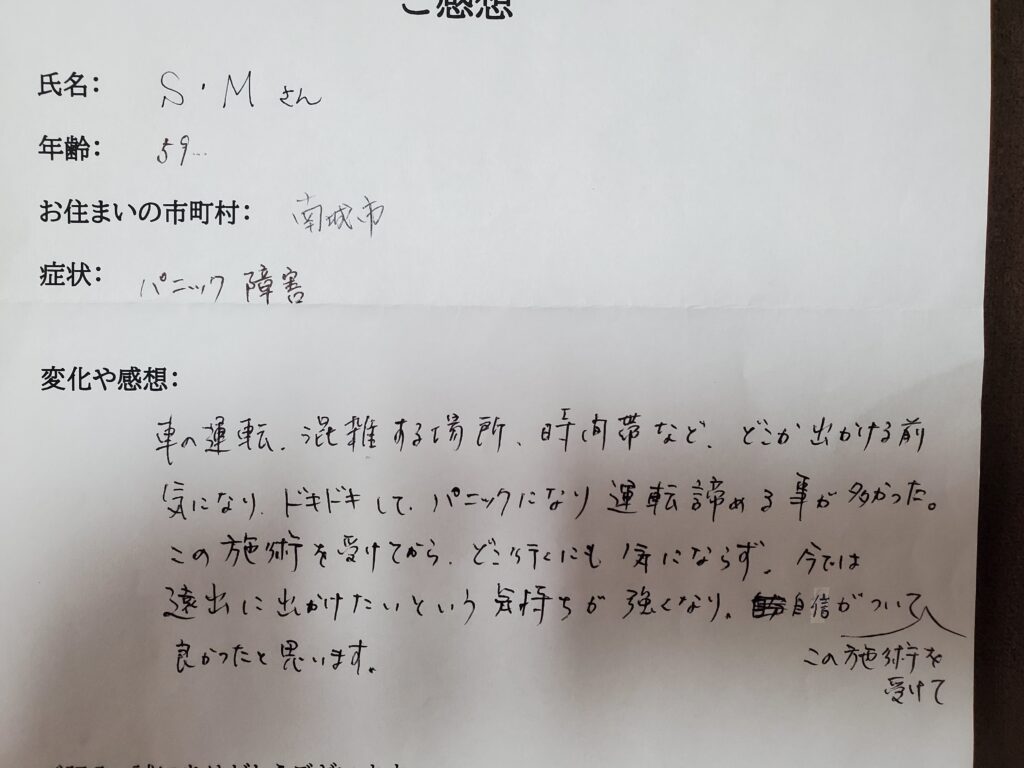 ご感想
氏名: S・Mさん
年齢: 59
お住まいの市町村: 南城市
症状: パニック障害
変化や感想:
車の運転、混雑する場所、時間帯など、どこか出かける前
気になり、ドキドキして、パニックになり運転諦める事が多かった。
この施術を受けてから、どこ行くにも気にならず、今では
遠出に出かけたいという気持ちが強くなり、自信がついて
この施術を
受けて
良かったと思います。